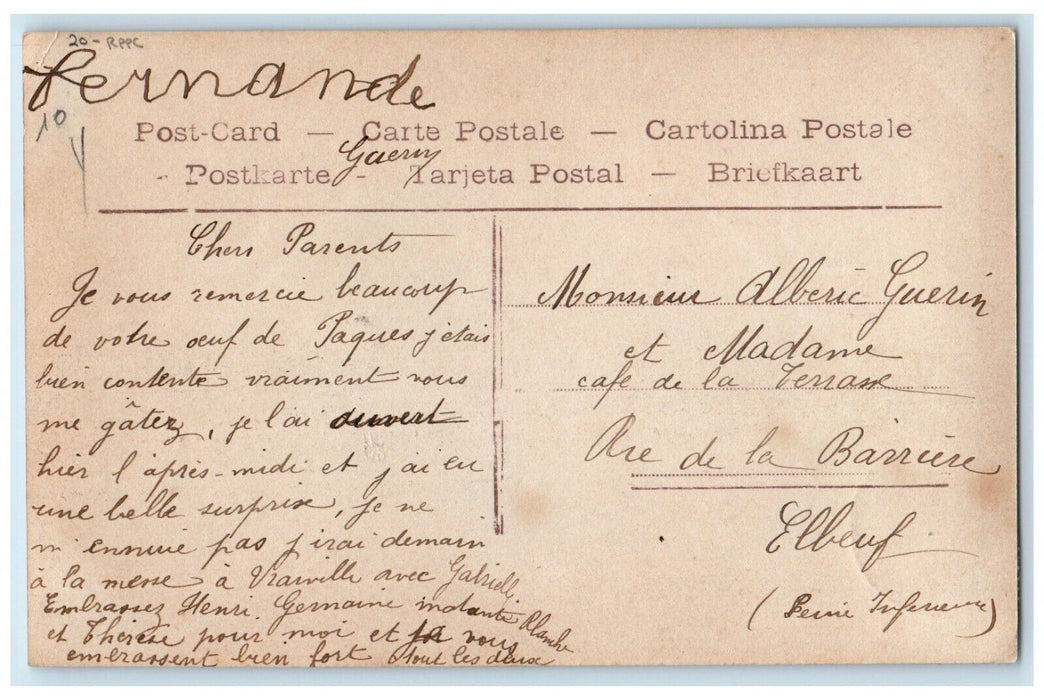 20 - RPPC
Fernande
10
Post-Card — Carte Postale — Cartolina Postale
Guerin
- Postkarte - Tarjeta Postal — Briefkaart
Chers Parents
Je vous remercie beaucoup
de votre œuf de Paques j'etais
bien contente vraiment vous
me gâtez, je l'ai ouvert
hier l'après-midi et j'ai eu
une belle surprise, je ne
m'ennuie pas j'irai demain
à la messe à Vraiville avec Gabrielle
Embrassez Henri Germaine ma tante Blanche
et Thérèse pour moi et vous
embrassent bien fort tout les deux
Monsieur Alberic Guerin
et Madame
café de la Terrasse
Rue de la Barrière
Elbeuf
(Seine Inferieure)